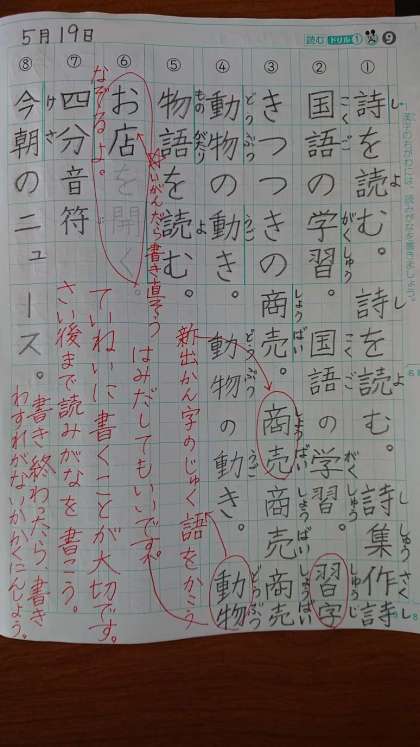 5月19日
読む ドリル① ❾
漢字のちがわには、読みがなを書きましょう。
① 詩を読む。詩を読む。詩集作詩
し よ し よ し しゅう さく し
② 国語の学習。国語の学習。習字
こく ご がく しゅう こく ご がく しゅう しゅう じ
③ きつつきの商売。商売商売商売
しょう ばい しょう ばい しょう ばい しょう ばい
④ 動物の動き。動物の動き。動物
どう ぶつ うご どう ぶつ うご どう ぶつ
⑤ 物語を読む。
もの がたり よ
⑥ お店を開く。
⑦ 四分音符
⑧ 今朝のニュース。
け さ
新出かん字のじゅく語をかこう
はみだしてもいいです。
ていねいに書くことが大切です。
さい後まで読みがなを書こう。
書き終わったら、書き
わすれがないかかくにんしよう。
なぞるよ。